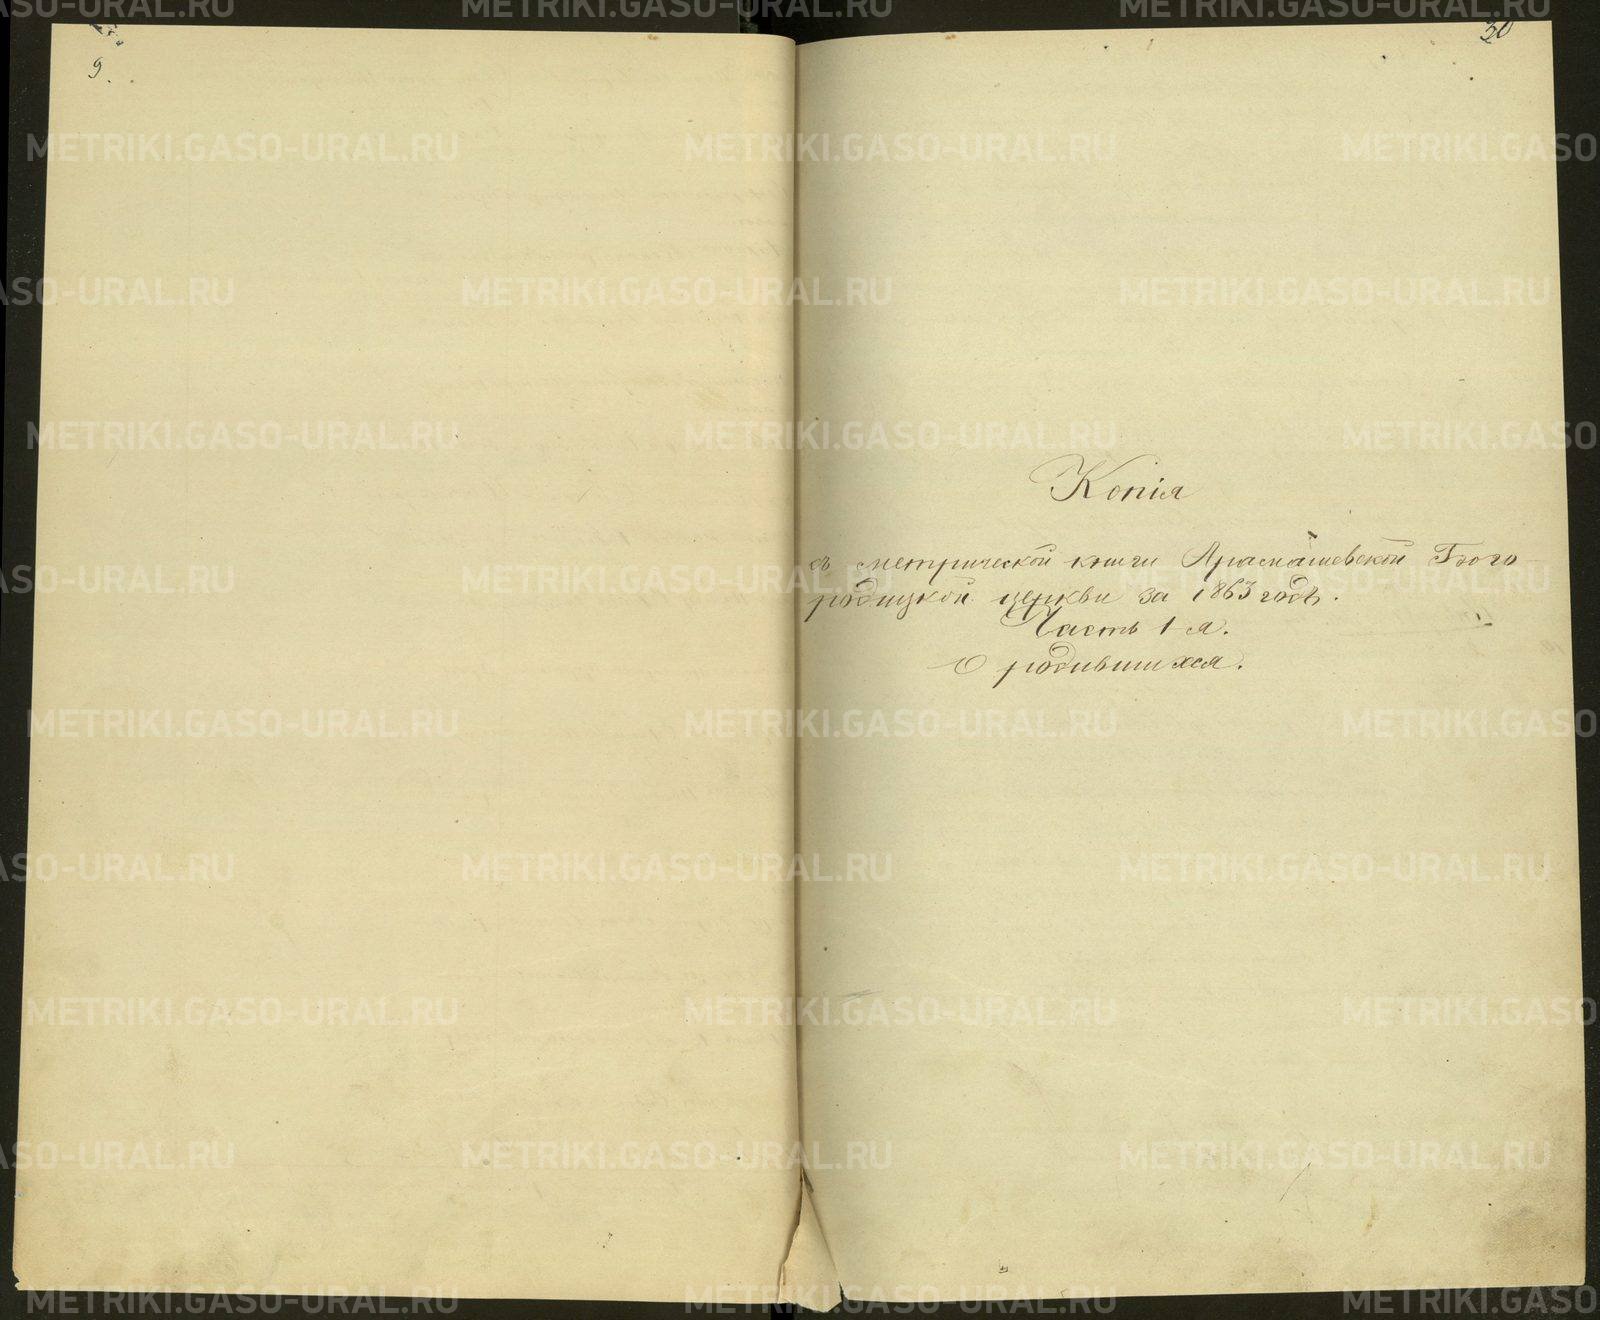 9.
30
Копія
съ метрической книги Арамашевской Бого
родицкой церкви за 1863 годъ.
Часть 1 я.
О родившихся.
METRIKI.GASO-URAL.RU